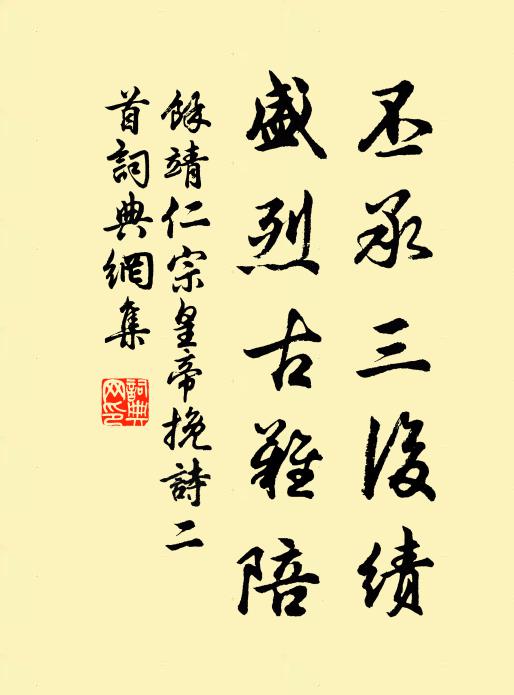 丕承三後績
盛烈古難陪
餘靖仁宗皇帝挽詩二
首詞典網集
詞典
网印